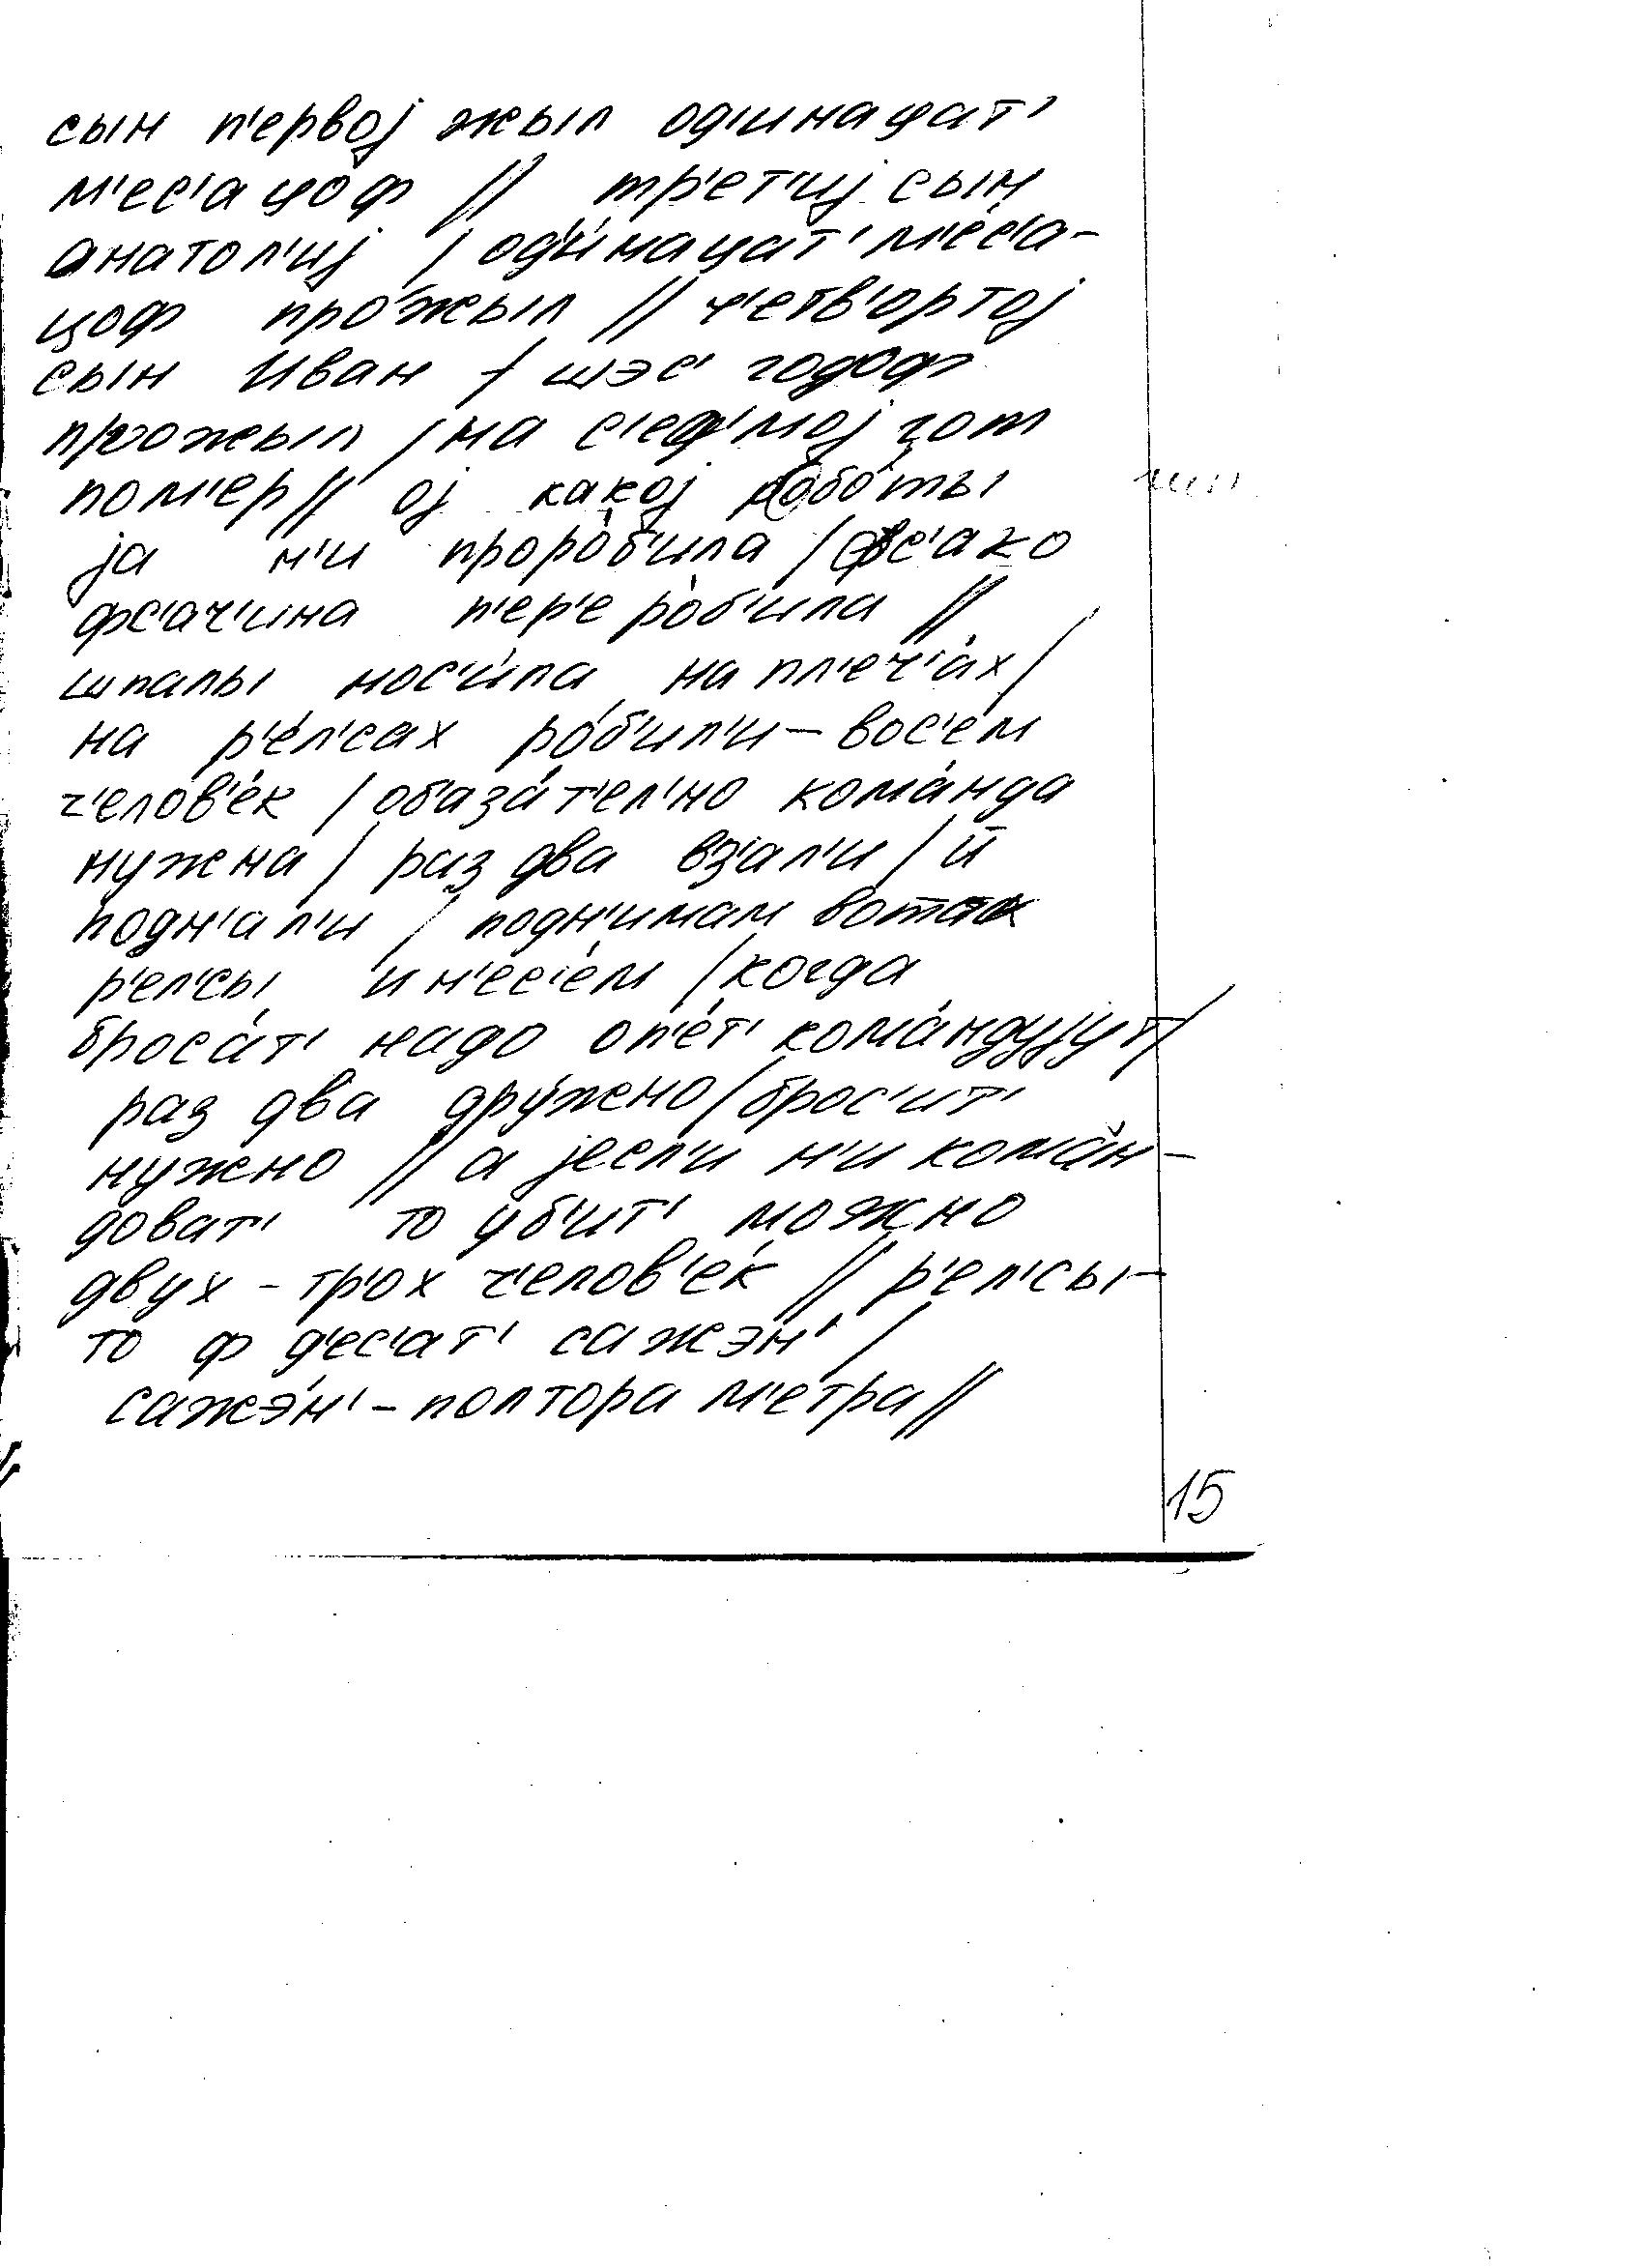 сын п'ервој жыл од'инацат'
м'ес'ацоф // тр'ет'иј сын
анатол'иј / од'и́нацат' м'е́с'а-
цоф про́жыл // ч'етв'ортој
сын Иван / шэс' годоф
прожыл / на с'ед'мој гот
пом'ер // ој какој робо́ты
ја н'и проро́б'ила / фс'ако
фс'ач'ина п'ер'еро́б'ила //
шпалы нос'и́ла на пл'еч'а́х /
на р'е́л'сах ро́б'ил'и – вос'ем
ч'елов'е́к / об'аза́т'ел'но кома́нда
нужена / раз два вз'ал'и / и
подн'ал'и / подн'имам вотак
р'ел'сы и н'ес'ем / когда
броса́т' надо оп'е́т' кома́ндујут /
раз два дру́жено / брос'ит'
нужно // а јесл'и н'и кома́н-
доват' то уб'ит' можно
двух - тр'ох ч'елов'е́к // р'ел'сы-
то ф д'ес'ат' сажэн' /
сажэ́н' - полтора м'етра //
15